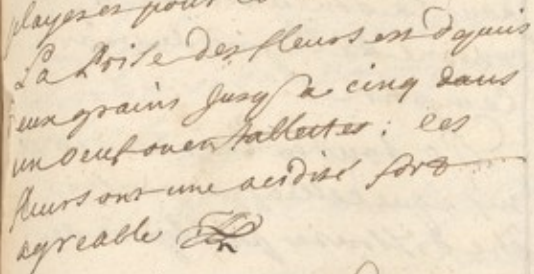 playes et pour
La Prise des fleurs est depuis
deux grains jusqu'a cinq dans
un oeuf ou en tablettes : ces
fleurs ont une acidité fort
agreable